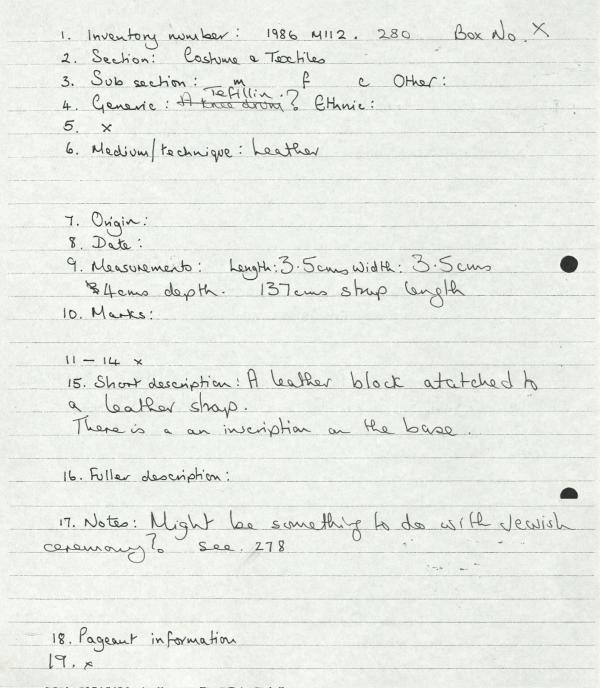 1. Inventory number: 1986 M112. 280 Box No. X
2. Section: Costume & Textiles
3. Sub section: m f c Other:
Tefillin.
4. Generic: A knee drum? Ethnic:
5. x
6. Medium/technique: Leather
7. Origin:
8. Date:
9. Measurements: Length: 3.5cms Width: 3.5cms
4cms depth. 137cms strap length
10. Marks:
11 - 14 x
15. Short description: A leather block atatched to
a leather strap.
There is a an inscription on the base.
16. Fuller description:
17. Notes: Might be something to do with Jewish
ceremony? See. 278
18. Pageant information
19. x